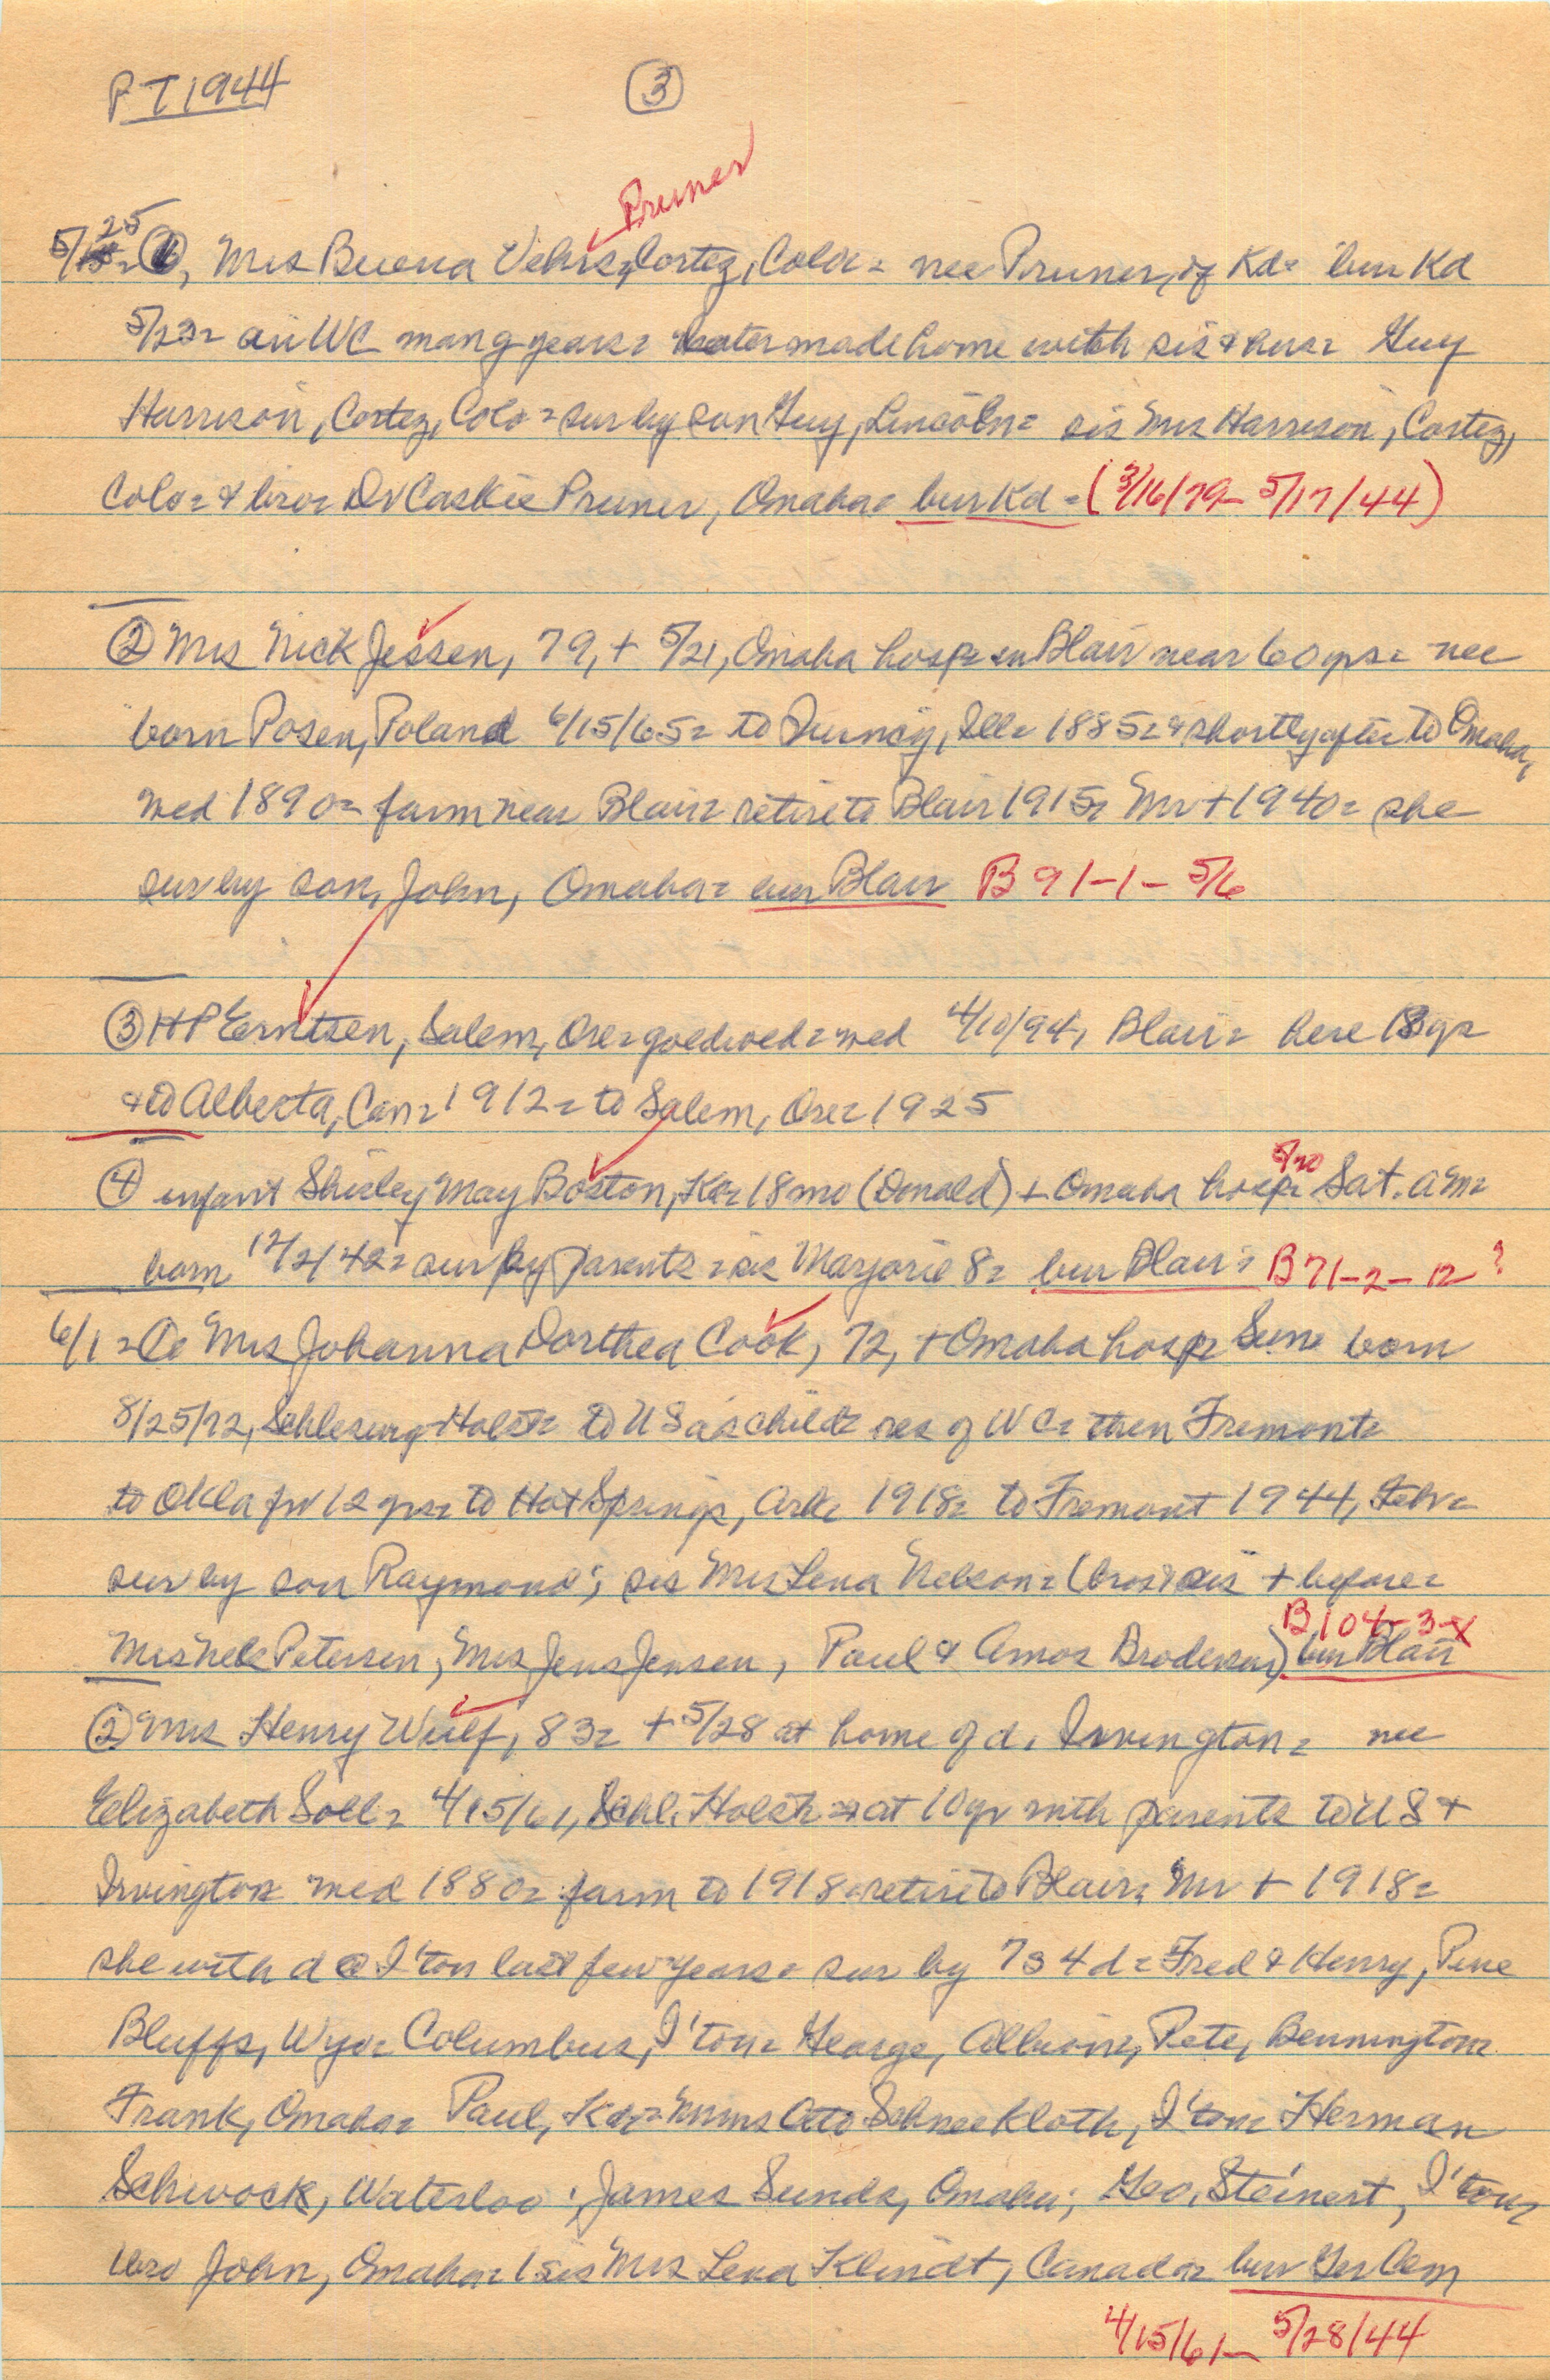 PT 1944 ③
Pruner
5/25 = ①, Mrs Buena Vehrs, Cortez, Colo = nee Pruner, of Kd = bur Kd
5/23 = in WC many years = later made home with sis & hus = Guy
Harrison, Cortez, Colo = sur by son Guy, Lincoln = sis Mrs Harrison, Cortez,
Colo = & bro = Dr Caskie Pruner, Omaha = bur Kd = (3/16/79 - 5/17/44)
② Mrs Nick Jessen, 79, + 5/21, Omaha hosp = in Blair near 60 yrs = nee
born Posen, Poland 6/15/65 = to Quincy, Ill = 1885 = & shortly after to Omaha,
wed 1890 = farm near Blair = retire to Blair 1915 = Mr + 1940 = she
sur by son, John, Omaha = bur Blair B 91-1- 5/6
③ HP Eerntsen, Salem, Ore = goldwed = wed 4/10/94, Blair = here 18 yr
& to Alberta, Can = 1912 = to Salem, Ore = 1925
④ infant Shirley May Boston, Ka = 18 mo (Donald) + Omaha hosp = 5/20 Sat. AM =
born 12/2/42 = sur by parents = sis Marjorie 8 = bur Blair = B 71-2-12 ?
6/1 = ① Mrs Johanna Dorthea Cook, 72, + Omaha hosp = Sun = born
8/25/72, Schleswig Holst = to US as child = res of WC = then Fremont =
to Okla for 12 yrs = to Hot Springs, Ark = 1918 = to Fremont 1944, Feb =
sur by son Raymond; sis Mrs Lena Nelson = (bros & sis + before =
B 104-3-X
Mrs Nels Petersen, Mrs Jens Jensen, Paul & Amos Brodersen) bur Blair
② Mrs Henry Wulf, 83 = + 5/28 at home of d. Irvington = nee
Elizabeth Soll = 4/15/61, Schl. Holst = at 10 yr with parents to US +
Irvington = wed 1880 = farm to 1918 = retire to Blair = Mr + 1918 =
she with d @ I'ton last few years = sur by 7s 4d = Fred & Henry, Pine
Bluffs, Wyo = Columbus, I'ton = George, Albion, Pete, Bennington =
Frank, Omaha = Paul, Ka = Mmes Otto Schneekloth, I'ton = Herman
Schwock, Waterloo; James Sunds, Omaha; Geo. Steinert, I'ton =
bro John, Omaha = 1 sis Mrs Lena Klindt, Canada = bur Ger Cem
4/15/61 - 5/28/44